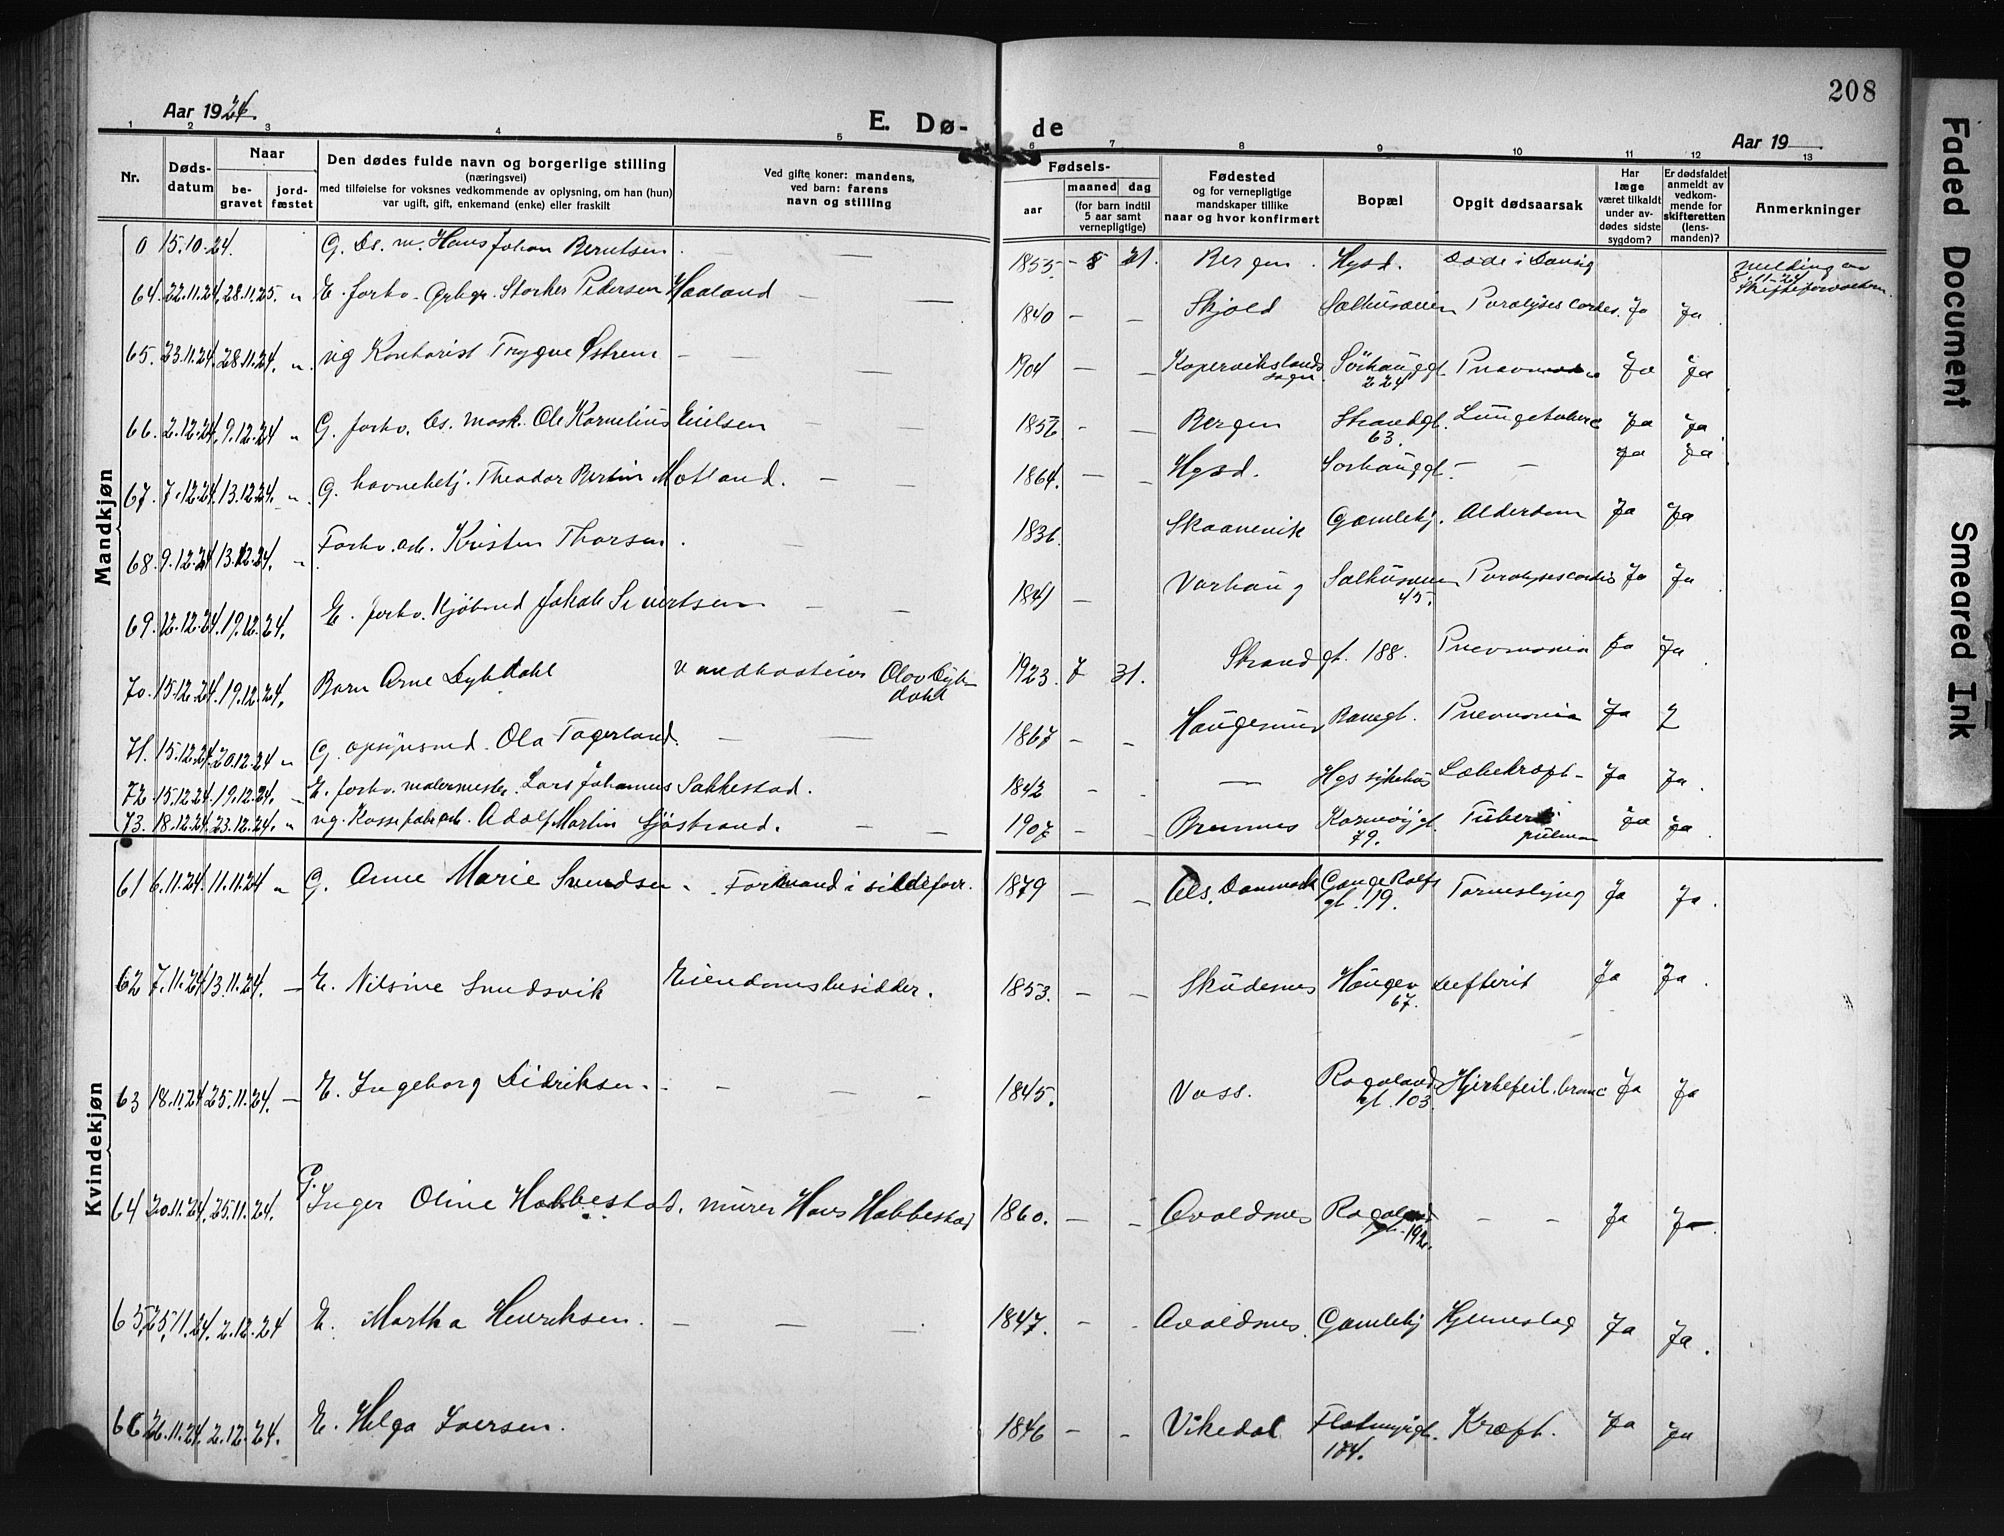 208
Aar 1924.
E. Dø-
de
Aar 19
1 2 3 4 5 6 7 8 9 10 11 12 13
Nr.
Døds-
datum
Naar
be-
gravet
jord-
fæstet
Den dødes fulde navn og borgerlige stilling
(næringsvei)
med tilføielse for voksnes vedkommende av oplysning, om han (hun)
var ugift, gift, enkemand (enke) eller fraskilt
Ved gifte koner: mandens,
ved barn: farens
navn og stilling
Fødsels-
aar
maaned
dag
(for barn indtil
5 aar samt
vernepligtige)
Fødested
og for vernepligtige
mandskaper tillike
naar og hvor konfirmert
Bopæl
Opgit dødsaarsak
Har
læge
været tilkaldt
under av-
dødes sidste
sygdom?
Er dødsfaldet
anmeldt av
vedkom-
mende for
skifteretten
(lens-
manden)?
Anmerkninger
Mandkjøn
0 15.10.24. G. Ds. m. Hans Johan Berntsen. 1855 - 5 21. Bergen. Hgsd. Døde i Danzig melding av
8-11-24
64. 22.11.24. 28.11.25. " E. forhv. Grbgr. Storker Pedersen Haaland - - 1840 - - Skjold Salhusveien Paralyses cordis. Ja Ja
65. 23.11.24. 28.11.24. ". ug Kontorist Trygve Østrem - - - 1904 - - Kopervik landssogn. Sörhauggt. 224 Pneumonia Ja Ja
66. 2.12.24. 9.12.24 " G. forhv. Ds. mask. Ole Kornelius Eielsen - - 1856 - - Bergen Strandgt. 63. Ja Ja
67. 7.12.24. 13.12.24. " G. havnebetj. Theodor Bertin Motland. - - 1864. - - Hgsd. Sorhauggt. - - Ja Ja
68. 9.12.24 13.12.24. " Forhv. arb. Kristen Thorsen. 1836. Skaanevik Gamlehj. Alderdom Ja Ja
69. 12.12.24. 19.12.24. E. forhv. Kjöbmd Jakob Sivertsen - - 1841 - Varhaug Salhusveien 45. Paralyses cordis Ja Ja
70. 15.12.24 19.12.24. Barn Arne Dybdahl Olav Dyb-
dahl 1923. 7 31. Strandgt. 188. Pneumonia Ja Ja
71. 15.12.24. 20.12.24 " G. opsynsmd. Ola Tagerland. - - 1867 - - Haugesund Pneumonia Ja
72. 15.12.24. 19.12.24. - E. forhv. malermester. Lars Johannes Sakkestad. 1842 - - - Hgs sykehus Læbekræft - Ja Ja.
73. 18.12.24. 23.12.24. " ug. Kassefabrarb. Adolf Martin Sjöstrand. - - 1907 - - Karmöygt. 79. Tuberk pulmon Ja Ja.
Kvindekjøn
61 6.11.24. 11.11.24 " G. Anne Marie Svendsen. Formand i sildeforr. 1879 - - Als. Danmark Gange Rolfs gt. 119. Tarmslyng Ja Ja.
62 7.11.24 13.11.24. - E. Nilsine Smedsvik Eiendomsbesidder. 1853. - - Skudesnes 67. Defterit Ja Ja.
63 18.11.24 25.11.24. - E. Ingeborg Didriksen. - - - - 1845. Voss. Rogalands gt. 103. Hjertefeil, bronc Ja Ja
64 20.11.24. 25.11.24. G. Inger Oline Habbestad. murer Hans Habbestad 1860. - - Avaldsnes Rogaland gt. 192. - - Ja Ja
65. 25.11.24. 2.12.24 E. Martha Henriksen. - - - 1847. - - Avaldsnes. Gamlehj Hjerneslag Ja Ja.
66. 26.11.24. 2.12.24. E. Helga Iversen. 1846 - - Vikedal Flotmyrgt. 184. Kræft. Ja Ja
Faded Document
Smeared Ink